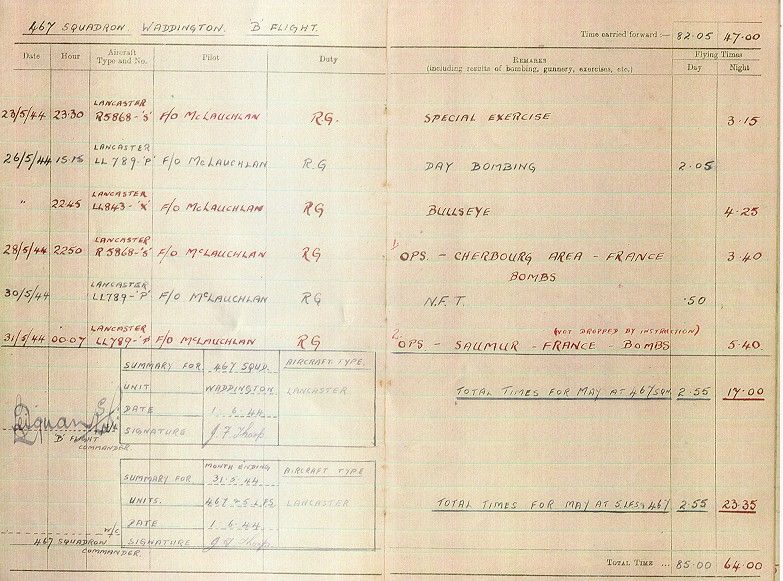 467 SQUADRON. WADDINGTON. 'B' FLIGHT.
Time carried forward :— 82.05 47.00
Date Hour Aircraft Type and No. Pilot Duty Remarks (including results of bombing, gunnery, exercises, etc.) Flying Times Day Night
23/5/44 23.30 LANCASTER R5868-'S' F/O McLAUCHLAN RG. SPECIAL EXERCISE 3.15
26/5/44 15.15 LANCASTER LL789-'P' F/O McLAUCHLAN R.G DAY BOMBING 2.05
" 2245 LANCASTER LL843-'X' F/O McLAUCHLAN RG BULLSEYE 4.25
28/5/44 2250 LANCASTER R5868-'S' F/O McLAUCHLAN RG 1. OPS. - CHERBOURG AREA - FRANCE BOMBS 3.40
30/5/44 LANCASTER LL789-'P' F/O McLAUCHLAN RG N.F.T. .50
(NOT DROPPED BY INSTRUCTION)
31/5/44 00.07 LANCASTER LL789-'P' F/O McLAUCHLAN RG 2. OPS - SAUMUR - FRANCE - BOMBS 5.40
SUMMARY FOR 467 SQUD. AIRCRAFT TYPE.
UNIT WADDINGTON LANCASTER
DATE 1.6.44
SIGNATURE J F Thorp
'B' FLIGHT COMMANDER.
TOTAL TIMES FOR MAY AT 467 SQN 2.55 17.00
MONTH ENDING
SUMMARY FOR 31.5.44 AIRCRAFT TYPE
UNITS. 467 & 5 LFS LANCASTER
DATE 1.6.44
SIGNATURE
W/C
467 SQUADRON COMMANDER.
TOTAL TIMES FOR MAY AT 5.LFS & 467 2.55 23.35
Total Time ... 85.00 64.00